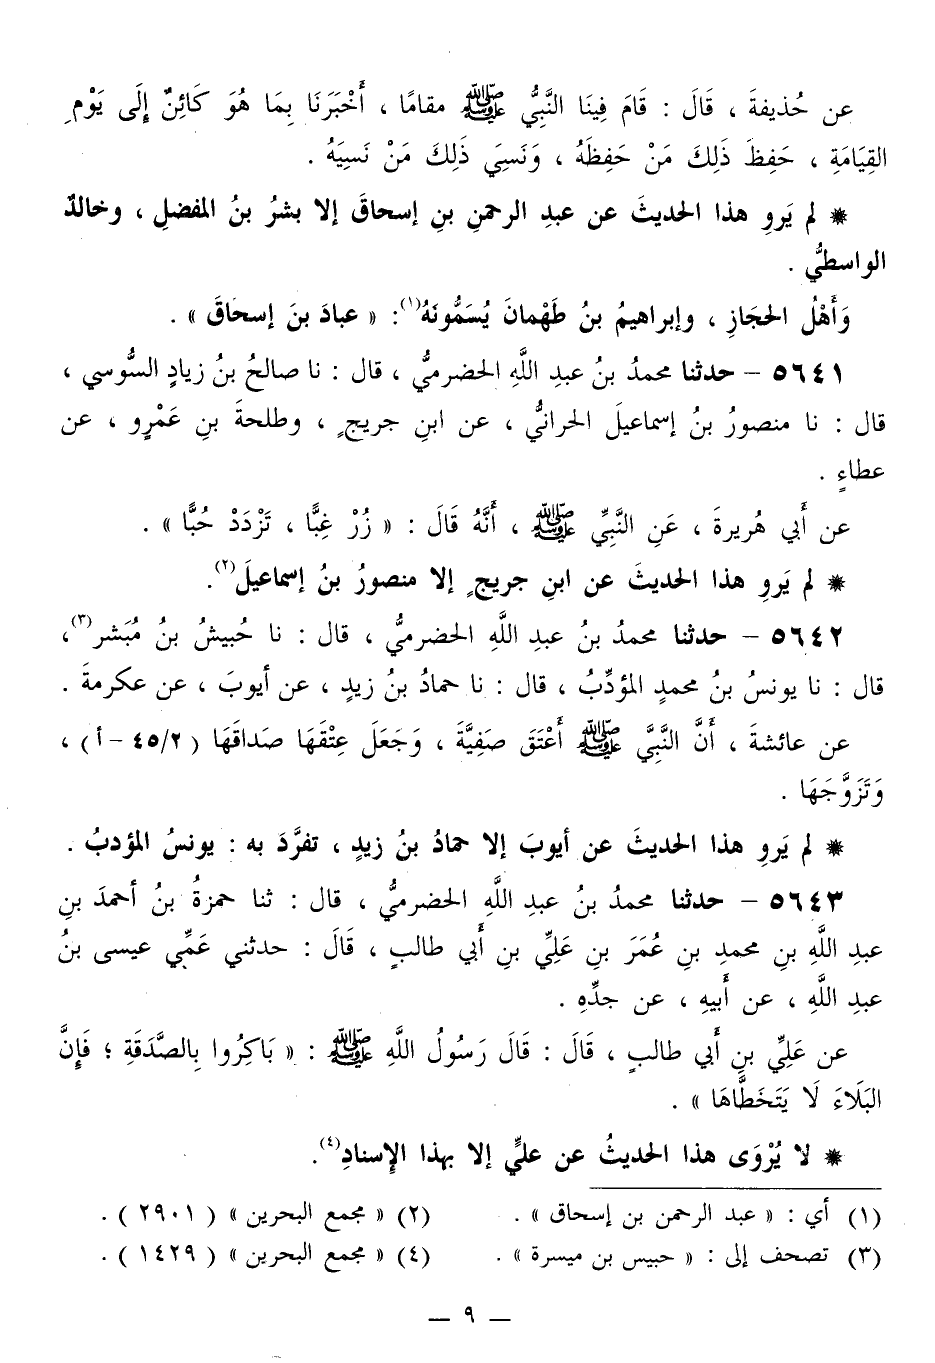 عن حُذيفةَ ، قَالَ : قَامَ فِينَا النَّبِيُّ ﷺ مقامًا ، أَخْبَرَنَا بِمَا هُوَ كَائِنٌ إِلَى يَوْمِ
القِيَامَةِ ، حَفِظَ ذَلِكَ مَنْ حَفِظَهُ ، وَنَسِيَ ذَلِكَ مَنْ نَسِيَهُ .
* لم يَروِ هذا الحديثَ عن عبدِ الرحمنِ بنِ إسحاقَ إلا بشرُ بنُ المفضلِ ، وخالدٌ
الواسطيُّ .
وَأَهْلُ الحجَازِ ، وإبراهيمُ بنُ طَهْمانَ يُسَمُّونَهُ(١): « عبادَ بنَ إسحَاقَ » .
٥٦٤١ - حدثنا محمدُ بنُ عبدِ اللَّهِ الحضرميُّ ، قال : نا صالحُ بنُ زيادٍ السُّوسي ،
قال : نا منصورُ بنُ إسماعيلَ الحرانيُّ ، عن ابنِ جريجٍ ، وطلحةَ بنِ عَمْرٍو ، عن
عطاءٍ .
عن أَبي هُريرةَ ، عَنِ النَّبِيِّ ﷺ ، أَنَّهُ قَالَ : « زُرْ غِبًّا ، تَزْدَدْ حُبًّا » .
* لم يَروِ هذا الحديثَ عن ابنِ جريجٍ إلا منصورُ بنُ إسماعيلَ(٢).
٥٦٤٢ - حدثنا محمدُ بنُ عبدِ اللَّهِ الحضرميُّ ، قال : نا حُبيشُ بنُ مُبَشر(٣)،
قال : نا يونسُ بنُ محمدٍ المؤدِّبُ ، قال : نا حمادُ بنُ زيدٍ ، عن أيوبَ ، عن عكرمةَ .
عن عائشةَ ، أَنَّ النَّبِيَّ ﷺ أَعْتَقَ صَفِيَّةَ ، وَجَعَلَ عِتْقَهَا صَداقَهَا ( ٤٥/٢ - أ ) ،
وَتَزَوَّجَهَا .
* لم يَروِ هذا الحديثَ عن أيوبَ إلا حمادُ بنُ زيدٍ ، تفرَّدَ به : يونسُ المؤدبُ .
٥٦٤٣ - حدثنا محمدُ بنُ عبدِ اللَّهِ الحضرميُّ ، قال : ثنا حمزةُ بنُ أحمدَ بنِ
عبدِ اللَّهِ بنِ محمدِ بنِ عُمَرَ بنِ عَلِيِّ بنِ أَبي طالبٍ ، قَالَ : حدثني عَمِّي عيسى بنُ
عبدِ اللَّهِ ، عن أَبيهِ ، عن جدِّهِ .
عن عَلِيِّ بنِ أَبي طالبٍ ، قَالَ : قَالَ رَسُولُ اللَّهِ ﷺ : « بَاكِرُوا بِالصَّدَقَةِ ؛ فَإِنَّ
البَلَاءَ لَا يَتَخَطَّاهَا » .
* لا يُرْوَى هذا الحديثُ عن عليٍّ إلا بهذا الإِسنادِ(٤).
(١) أي : « عبد الرحمن بن إسحاق » . (٢) « مجمع البحرين » ( ٢٩٠١ ) .
(٣) تصحف إلى : « حبيس بن ميسرة » . (٤) « مجمع البحرين » ( ١٤٢٩ ) .
— ٩ —